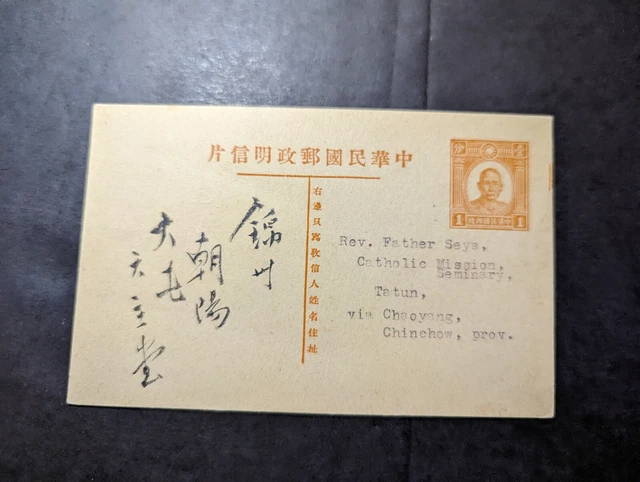 中華民國郵政明信片
壹 分
1 1
右邊只寫收信人姓名住址
Rev. Father Seys,
Catholic Mission,
Seminary,
Tatun,
via Chaoyang,
Chinchow, prov.
錦州
朝陽
大屯
天主堂